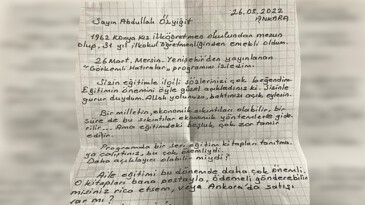 26.08.2022
ANKARA
Sayın Abdullah Özyiğit
1962 Konya Kız İlköğretmen okulundan mezun
olup, 31 yıl ilkokul öğretmenliğinden emekli oldum.
26 Mart, Mersin Yenişehir'den yayınlanan
"Görkemli Hatıralar" programını izledim.
Sizin eğitimle ilgili sözlerinizi çok beğendim
Eğitimin önemini öyle güzel açıkladınız ki. Sizinle
gurur duydum. Allah yolunuzu, bahtınızı açık eylesin.
Bir milletin, ekonomik sıkıntıları olabilir, bir
süre de bu sıkıntılar ekonomik yöntemlerle gide
rilir... Ama eğitimdeki boşluk, çok zor tamir
edilir.
Programda bir seri eğitim kitapları tanıtma
ya çalıştınız, bu çok önemliydi.
Daha açıklayıcı olabilir miydi?
Aile eğitimi bu dönemde daha çok önemli.
O kitapları bana postayla, ödemeli gönderebilir
misiniz rica etsem, veya Ankara'da satışı
var mı?